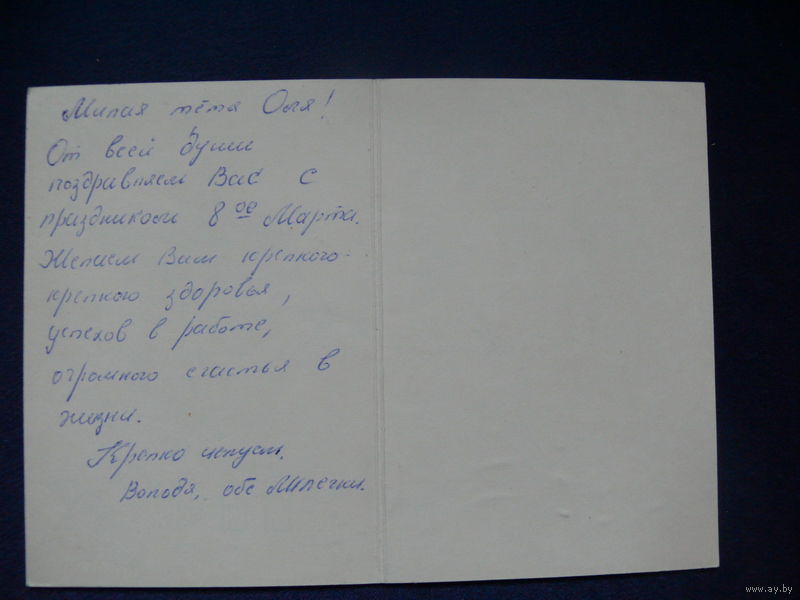 Милая тётя Оля!
От всей души
поздравляем Вас с
праздником 8ое Марта.
Желаем Вам крепкого-
крепкого здоровья,
успехов в работе,
огромного счастья в
жизни.
Крепко целуем.
Володя, обе Милечки.
www.ay.by